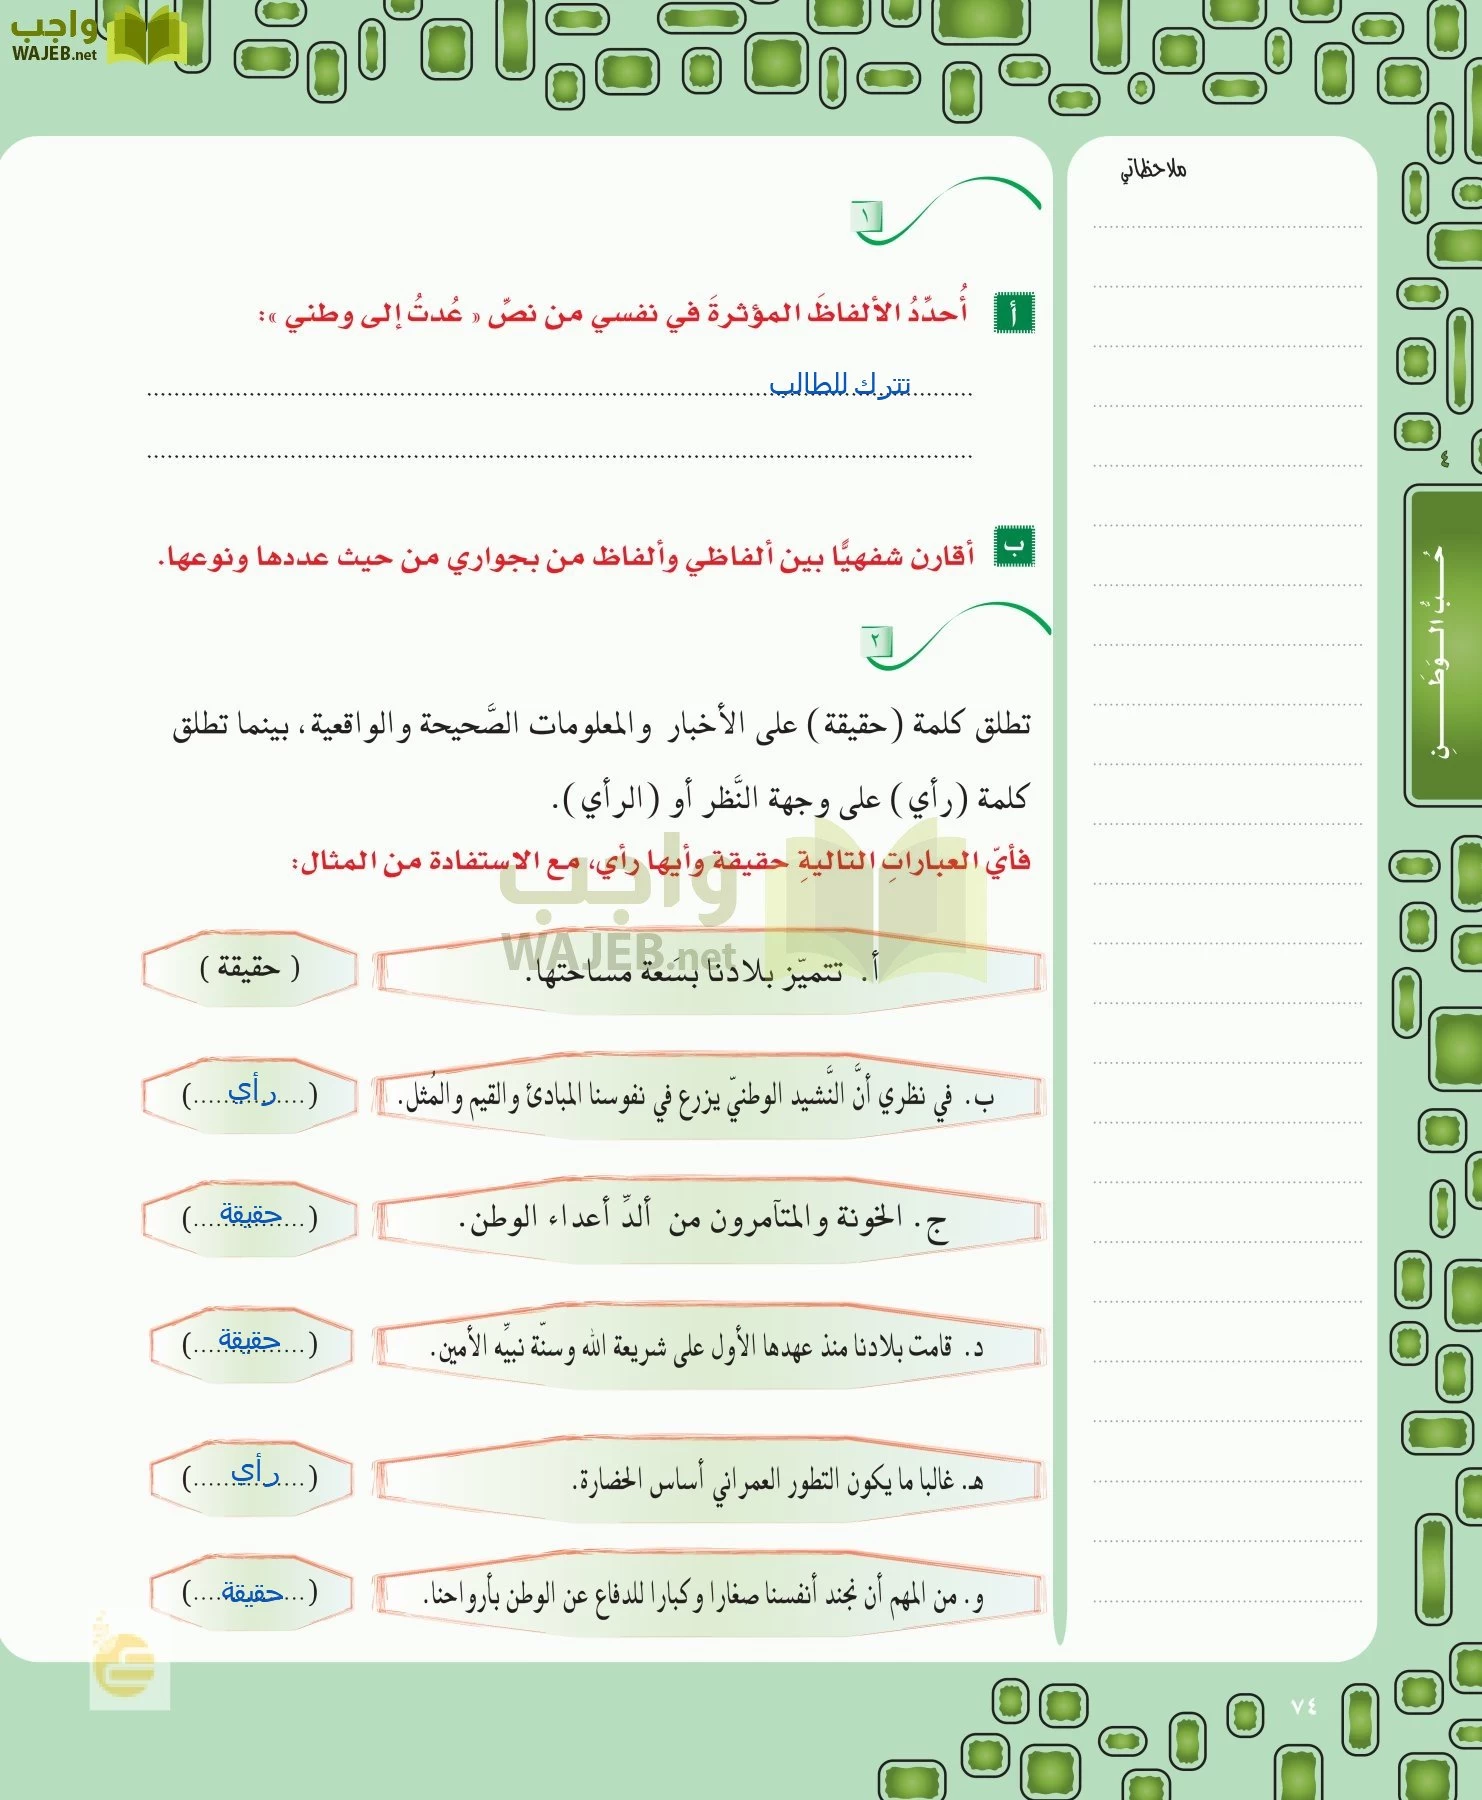 واجب
WAJEB.net
ملاحظاتي
١
أ
أُحدِّدُ الألفاظَ المؤثرةَ في نفسي من نصِّ « عُدتُ إلى وطني »:
نترك للطالب
ب
أقارن شفهيًّا بين ألفاظي وألفاظ من بجواري من حيث عددها ونوعها.
٢
تطلق كلمة (حقيقة) على الأخبار والمعلومات الصَّحيحة والواقعية، بينما تطلق
كلمة (رأي) على وجهة النَّظر أو (الرأي).
فأيّ العباراتِ التاليةِ حقيقة وأيها رأي، مع الاستفادة من المثال:
واجب
WAJEB.net
أ. تتميّز بلادنا بسَعة مساحتها. ( حقيقة )
ب. في نظري أنَّ النَّشيد الوطنيّ يزرع في نفوسنا المبادئ والقيم والمُثل. (رأي)
ج. الخونة والمتآمرون من ألدِّ أعداء الوطن. (حقيقة)
د. قامت بلادنا منذ عهدها الأول على شريعة الله وسنّة نبيِّه الأمين. (حقيقة)
هـ. غالبا ما يكون التطور العمراني أساس الحضارة. (رأي)
و. من المهم أن نجند أنفسنا صغارا وكبارا للدفاع عن الوطن بأرواحنا. (حقيقة)
٤
حُبُّ الوَطَنِ
٧٤